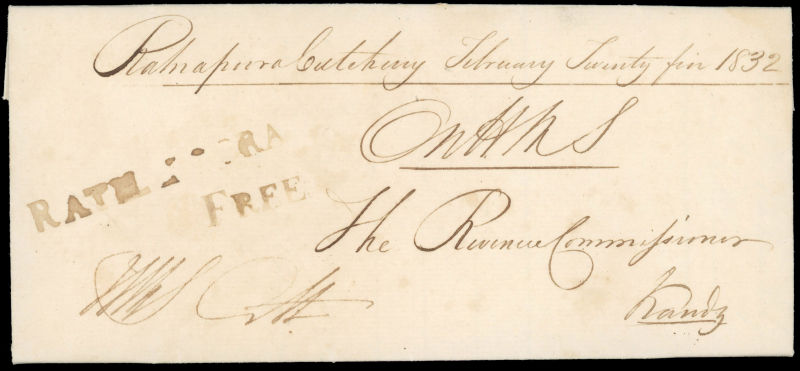 Ratnapoora Cutchery February Twenty five 1832
On H M S
RATN POORA
FREE
The Revenue Commissioner
Kandy